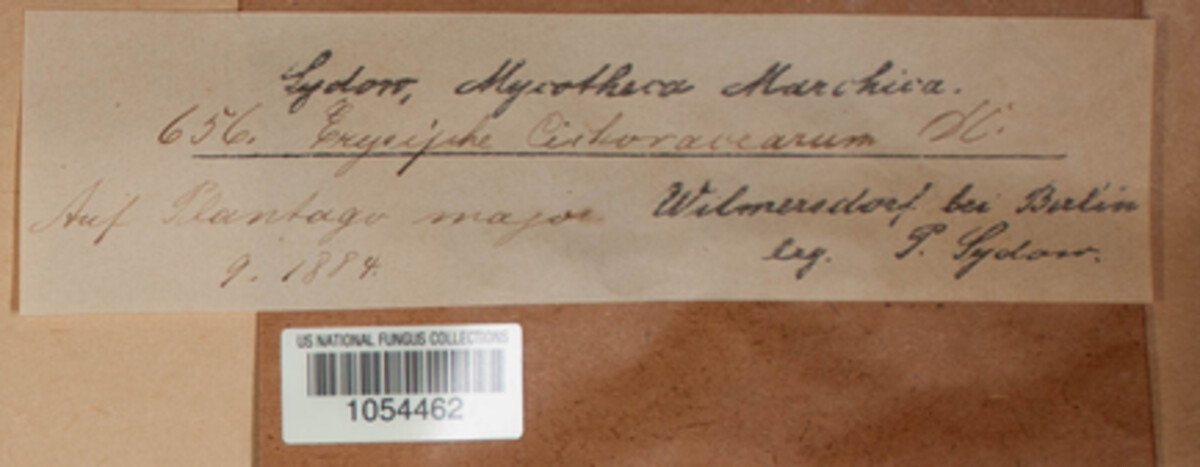 Sydow, Mycotheca Marchica.
656. Erysiphe Cichoracearum DC.
Auf Plantago major Wilmersdorf bei Berlin
9. 1884. leg. P. Sydow.
US NATIONAL FUNGUS COLLECTIONS
1054462